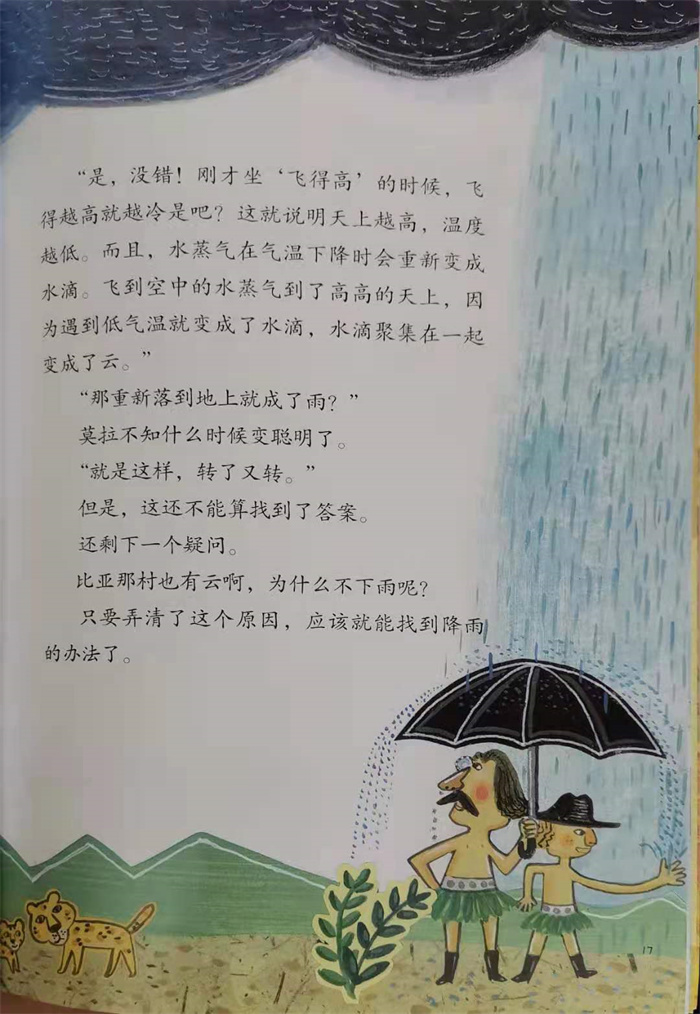 “是，没错！刚才坐‘飞得高’的时候，飞
得越高就越冷是吧？这就说明天上越高，温度
越低。而且，水蒸气在气温下降时会重新变成
水滴。飞到空中的水蒸气到了高高的天上，因
为遇到低气温就变成了水滴，水滴聚集在一起
变成了云。”
“那重新落到地上就成了雨？”
莫拉不知什么时候变聪明了。
“就是这样，转了又转。”
但是，这还不能算找到了答案。
还剩下一个疑问。
比亚那村也有云啊，为什么不下雨呢？
只要弄清了这个原因，应该就能找到降雨
的办法了。
17